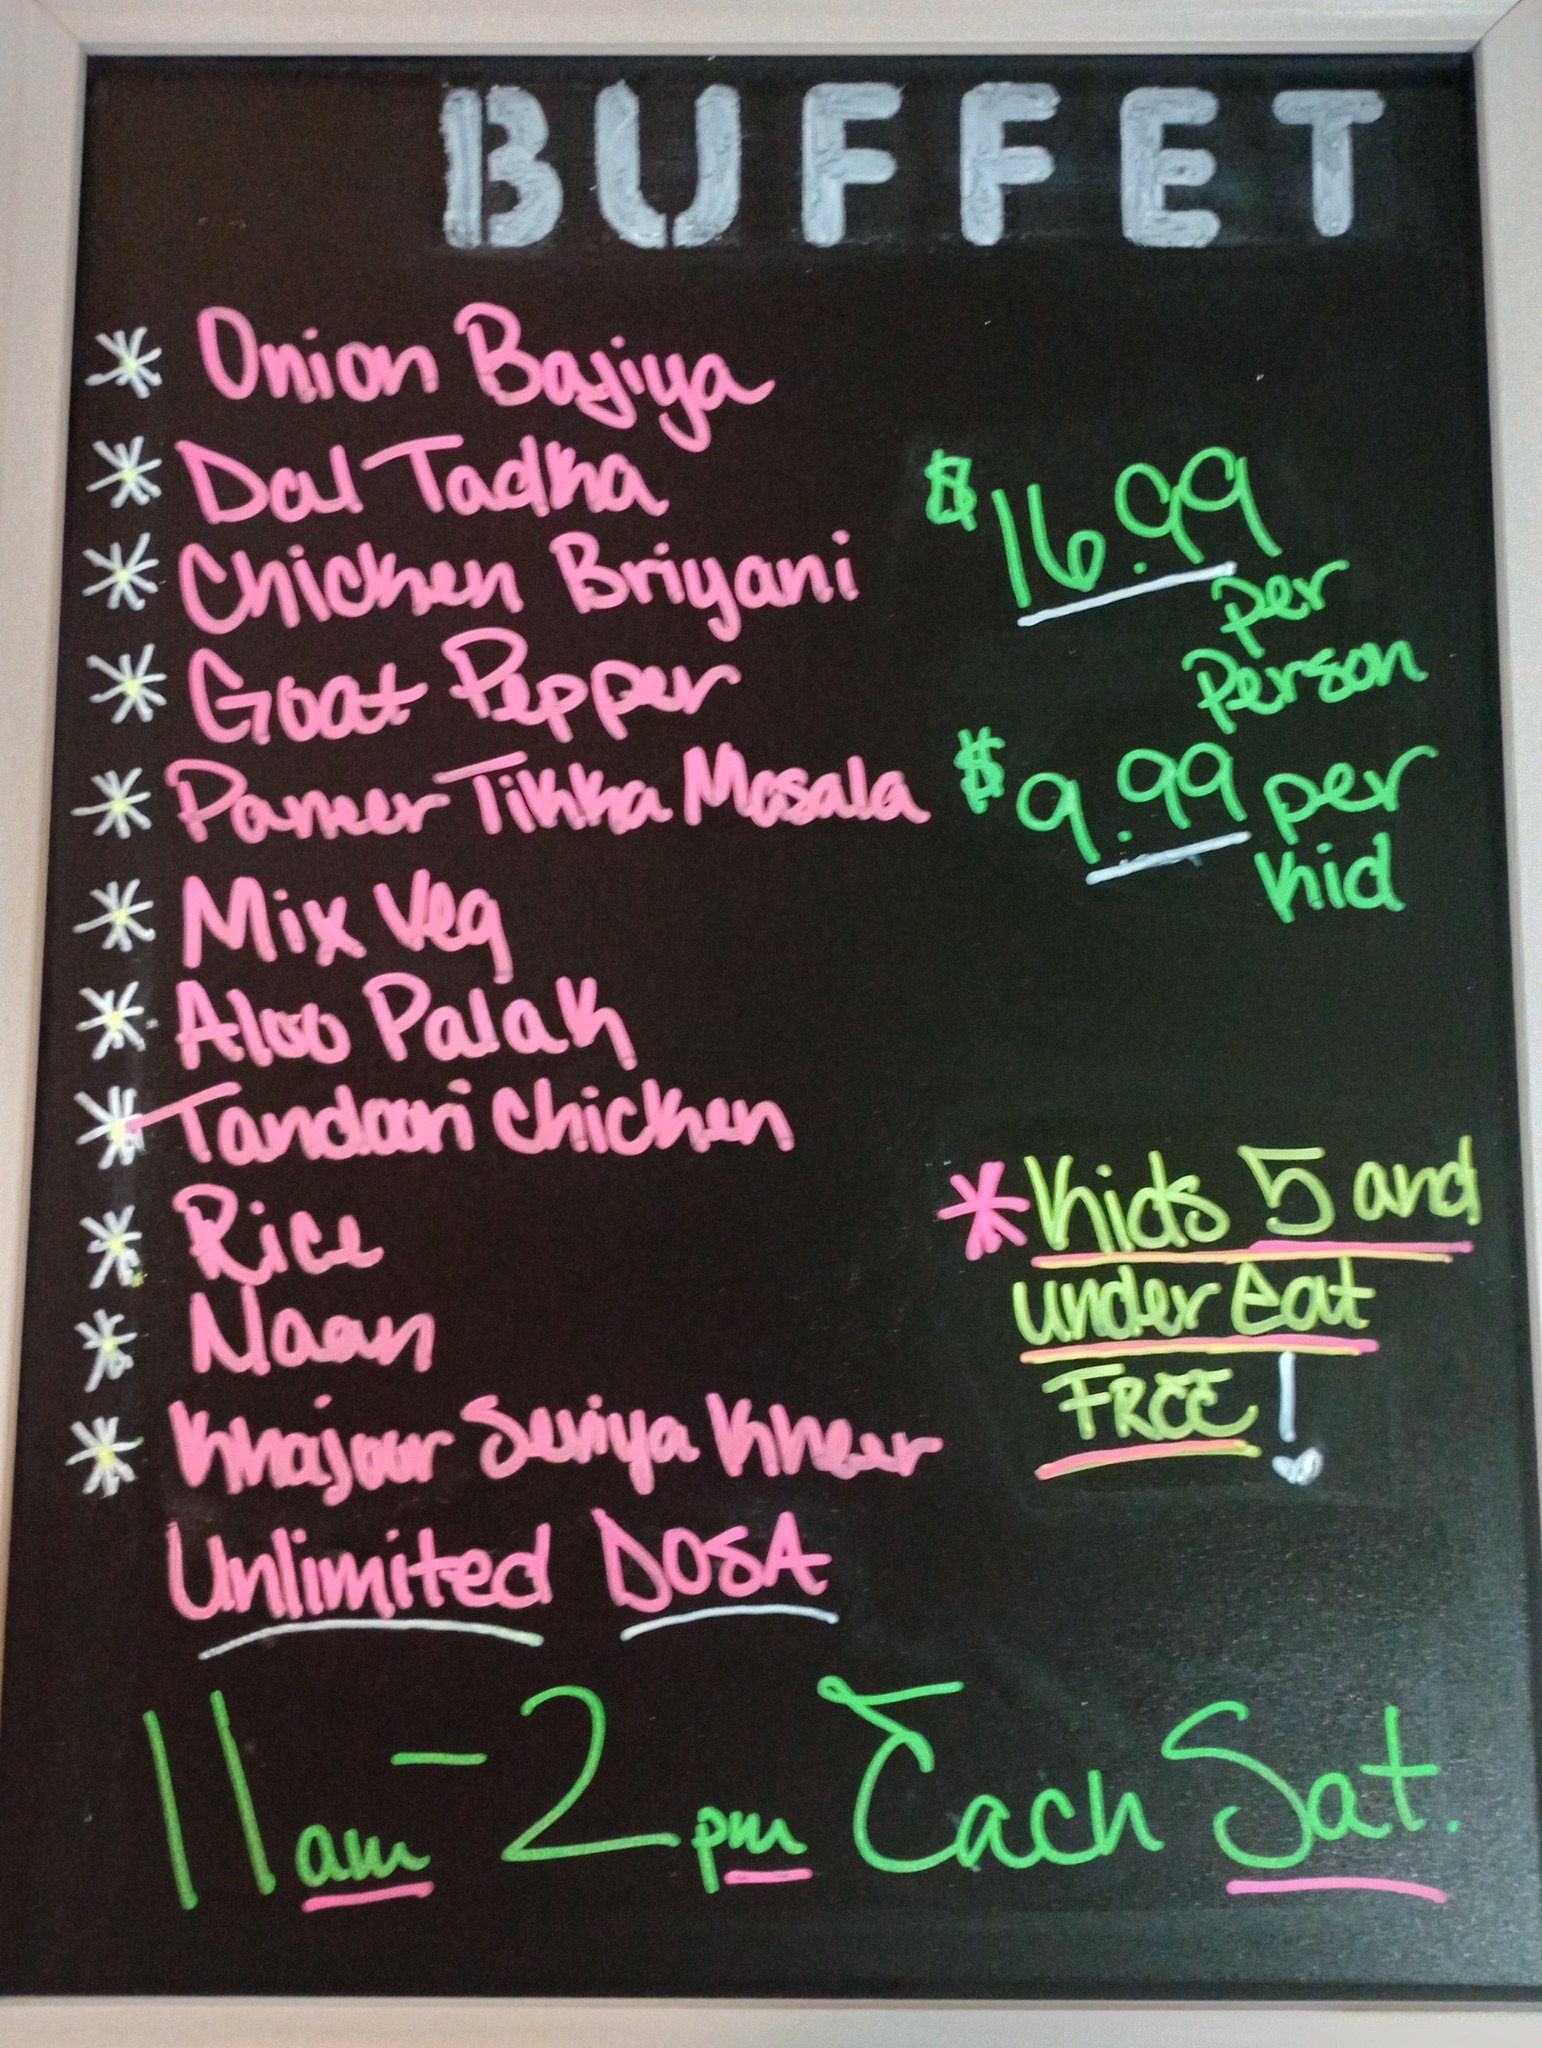 BUFFET
* Onion Bajiya
* Dal Tadka
* Chicken Briyani
* Goat Pepper
* Paneer Tikka Masala
* Mix Veg
* Aloo Palak
* Tandoori Chicken
* Rice
* Naan
* Khajoor Seviya Kheer
Unlimited DOSA
$16.99
per
Person
$9.99 per
Kid
* Kids 5 and
under Eat
FREE!
11am - 2pm Each Sat.